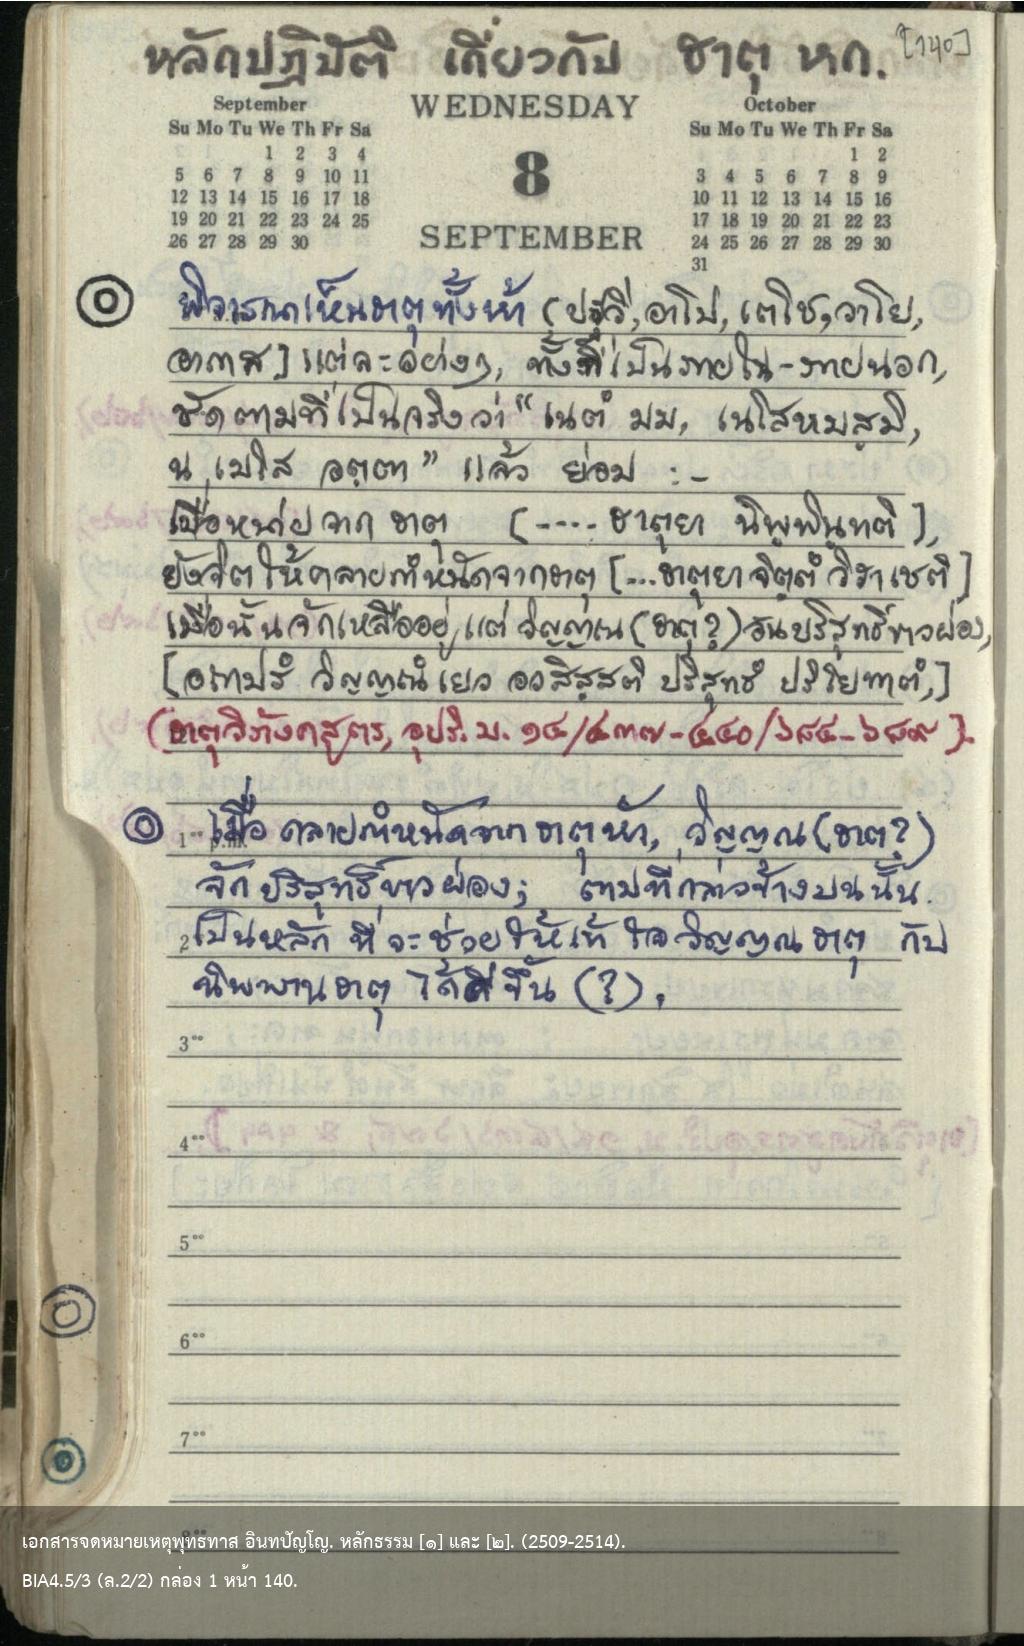 หลักปฏิบัติ เกี่ยวกับ ธาตุ หก. [140]
September
Su Mo Tu We Th Fr Sa
1 2 3 4
5 6 7 8 9 10 11
12 13 14 15 16 17 18
19 20 21 22 23 24 25
26 27 28 29 30
WEDNESDAY
8
SEPTEMBER
October
Su Mo Tu We Th Fr Sa
1 2
3 4 5 6 7 8 9
10 11 12 13 14 15 16
17 18 19 20 21 22 23
24 25 26 27 28 29 30
31
พิจารณาเห็นธาตุทั้งห้า (ปฐวี, อาโป, เตโช, วาโย,
อากาส] แต่ละอย่างๆ, ทั้งที่เป็นภายใน-ภายนอก,
ชัดตามที่เป็นจริงว่า "เนตํ มม, เนโสหมสฺมิ,
น เมโส อตฺตา" แล้ว ย่อม :-
เบื่อหน่ายจาก ธาตุ (---- ธาตุยา นิพฺพินฺทติ),
ยังจิตให้คลายกำหนัดจากธาตุ [...ธาตุยา จิตฺตํ วิราเชติ]
เมื่อนั้นจักเหลืออยู่แต่ วิญญาณ (ธาตุ?) อันบริสุทธิ์ขาวผ่อง,
[อถาปรํ วิญฺญาณํ เยว อวสิสฺสติ ปริสุทฺธํ ปริโยทาตํ,]
(ธาตุวิภังคสูตร, อุปริ. ม. ๑๔/๔๓๗-๔๔๐/๖๘๔-๖๘๙).
1°° p.m. เมื่อ คลายกำหนัดจาก ธาตุห้า, วิญญาณ (ธาตุ?)
จักบริสุทธิ์ขาวผ่อง; ตามที่กล่าวข้างบนนั้น.
2 เป็นหลัก ที่จะช่วยให้เข้าใจ วิญญาณธาตุ กับ
นิพพานธาตุ ได้ดีขึ้น (?).
3°°
4°°
5°°
6°°
7°°
เอกสารจดหมายเหตุพุทธทาส อินทปัญโญ. หลักธรรม [๑] และ [๒]. (2509-2514).
BIA4.5/3 (ล.2/2) กล่อง 1 หน้า 140.